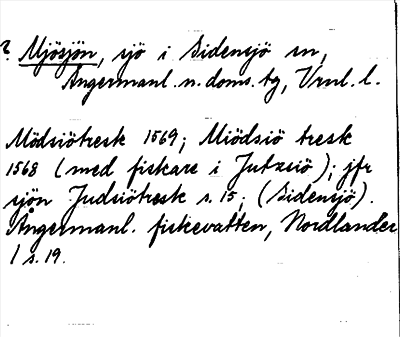 ? Mjösjön, sjö i Sidensjö sn,
Ångermanl. n. doms. tg, Vrnl. l.
Mödsiötresk 1569; Miödsiö tresk
1568 (med fiskare i Jutzsiö); jfr
sjön Judsiötresk s. 15; (Sidensjö).
Ångermanl. fiskevatten, Nordlander
1 s. 19.